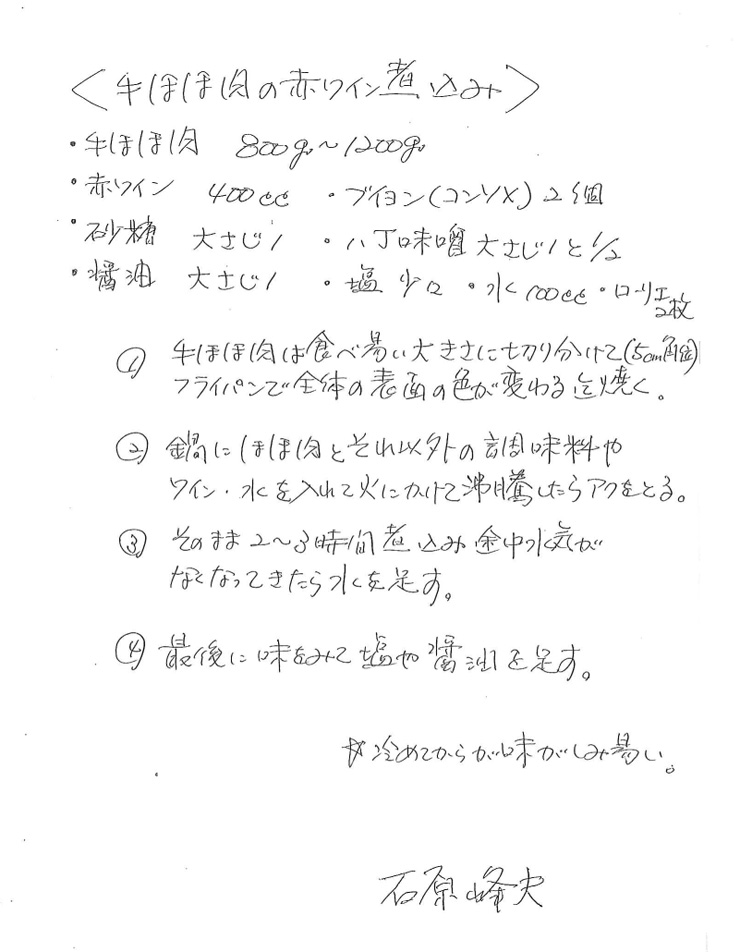 〈牛ほほ肉の赤ワイン煮込み〉
・牛ほほ肉 800g〜1200g
・赤ワイン 400cc ・ブイヨン(コンソメ)2個
・砂糖 大さじ1 ・八丁味噌大さじ1と1/2
・醤油 大さじ1 ・塩 少々 ・水100cc ・ローリエ2枚
① 牛ほほ肉は食べ易い大きさに切り分けて(5cm角位)
フライパンで全体の表面の色が変わる迄焼く。
② 鍋にほほ肉とそれ以外の調味料や
ワイン・水を入れて火にかけて沸騰したらアクをとる。
③ そのまま2〜3時間煮込み途中水気が
なくなってきたら水を足す。
④ 最後に味をみて塩や醤油を足す。
☆冷めてからが味がしみ易い。
石原峰夫